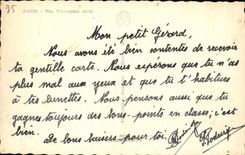 95
PARIS - The Triumphal Arch
Mon petit Gérard,
Nous avons été bien contentes de recevoir
ta gentille carte. Nous espérons que tu n'as
plus mal aux yeux et que tu t'habitues
à tes lunettes. Nous pensons aussi que tu
gagnes toujours des bons-points en classe; c'est
bien.
De bons baisers pour toi.